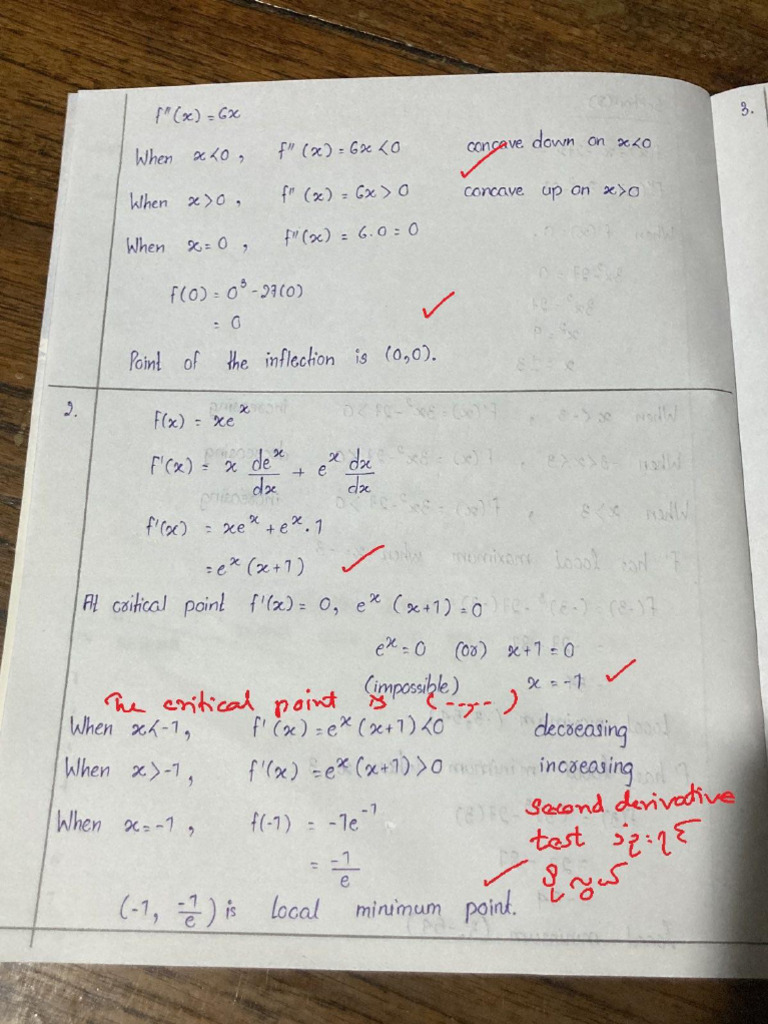 3.
f"(x) = 6x
When x<0, f"(x) = 6x <0 concave down on x<0
When x>0, f"(x) = 6x > 0 concave up on x>0
When x=0, f"(x) = 6.0 = 0
f(0) = 0³ - 27(0)
= 0
Point of the inflection is (0,0).
2.
f(x) = xeˣ
f'(x) = x deˣ/dx + eˣ dx/dx
f'(x) = xeˣ + eˣ.1
= eˣ (x+1)
At critical point f'(x) = 0, eˣ (x+1) = 0
eˣ = 0 (or) x+1 = 0
(impossible) x = -1
The critical point is (--,--)
When x<-1, f'(x) = eˣ (x+1) <0 decreasing
When x>-1, f'(x) = eˣ (x+1) >0 increasing
When x=-1, f(-1) = -1e⁻¹
= -1/e
(-1, -1/e) is local minimum point.
Second derivative
test သုံးရင်
ပိုလွယ်